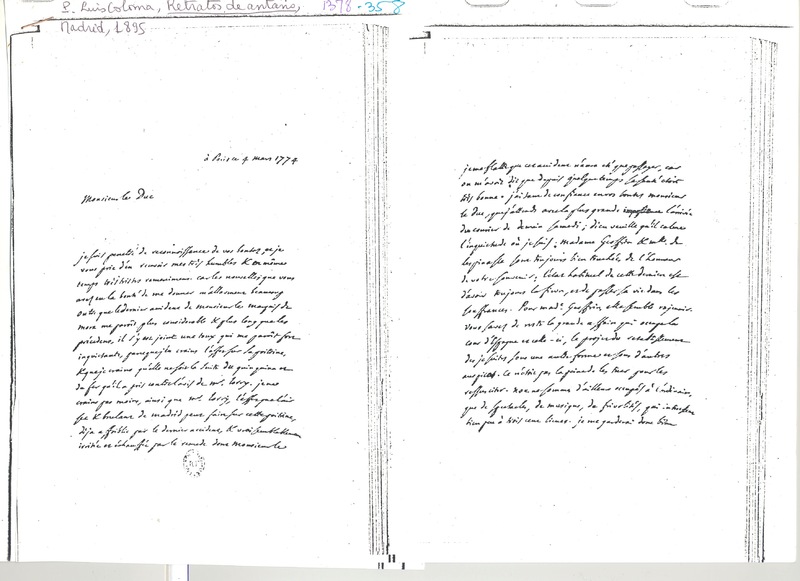 P. Luis Coloma, Retratos de antaño, 1378-358
Madrid, 1895
à Paris ce 4 mars 1774
Monsieur le Duc
je suis penetré de reconnoissance de vos bontés, et je
vous prie d'en recevoir mes très humbles & en même
temps très tristes remerciemens. car les nouvelles que vous
avez eu la bonté de me donner m'allarment beaucoup
outre que le dernier accident de monsieur le marquis de
mora me paroît plus considerable & plus long que les
précedens, il s'y est joint une toux qui me paroît fort
inquietante, parcequ'elle crains l'effet sur la poitrine,
& que je crains qu'elle ne soit la suite du quinquina et
du fer qu'il a pris contre l'avis de mr. lorry. je ne
crains pas moins, ainsi que mr. lorry, l'effet que l'air
sec & brulant de madrid peut faire sur cette poitrine,
déja affoiblie par le dernier accident, & vraisemblablement
irritée et échauffée par le remede dont monsieur le
je me flatte que cet accident n'aura été que passager, car
on m'avoit dit que depuis quelque temps sa santé étoit
très bonne. j'ai tant de confiance en vos bontés monsieur
le Duc, que j'attends avec la plus grande impatience l'arrivée
du courier de demain samedi; dieu veuille qu'il calme
l'inquietude où je suis. madame Geoffrin & mlle. de
lespinasse sont toujours bien touchées de l'honneur
de votre souvenir. l'état habituel de cette derniere est
d'avoir toujours la fievre, et de passer sa vie dans les
souffrances. Pour mad. Geoffrin, elle semble rajeunir.
vous savez de reste la grande affaire qui occupe la
cour d'Espagne et celle-ci, le projet du retablissement
des jesuites sous une autre forme et sous d'autres
auspices. ce n'étoit pas la peine de les tuer pour les
ressusciter. nous ne sommes d'ailleurs occupés à l'ordinaire,
que de spectacles, de musique, de frivolités, qui interessent
bien peu à trois cent lieues. je me garderai donc bien